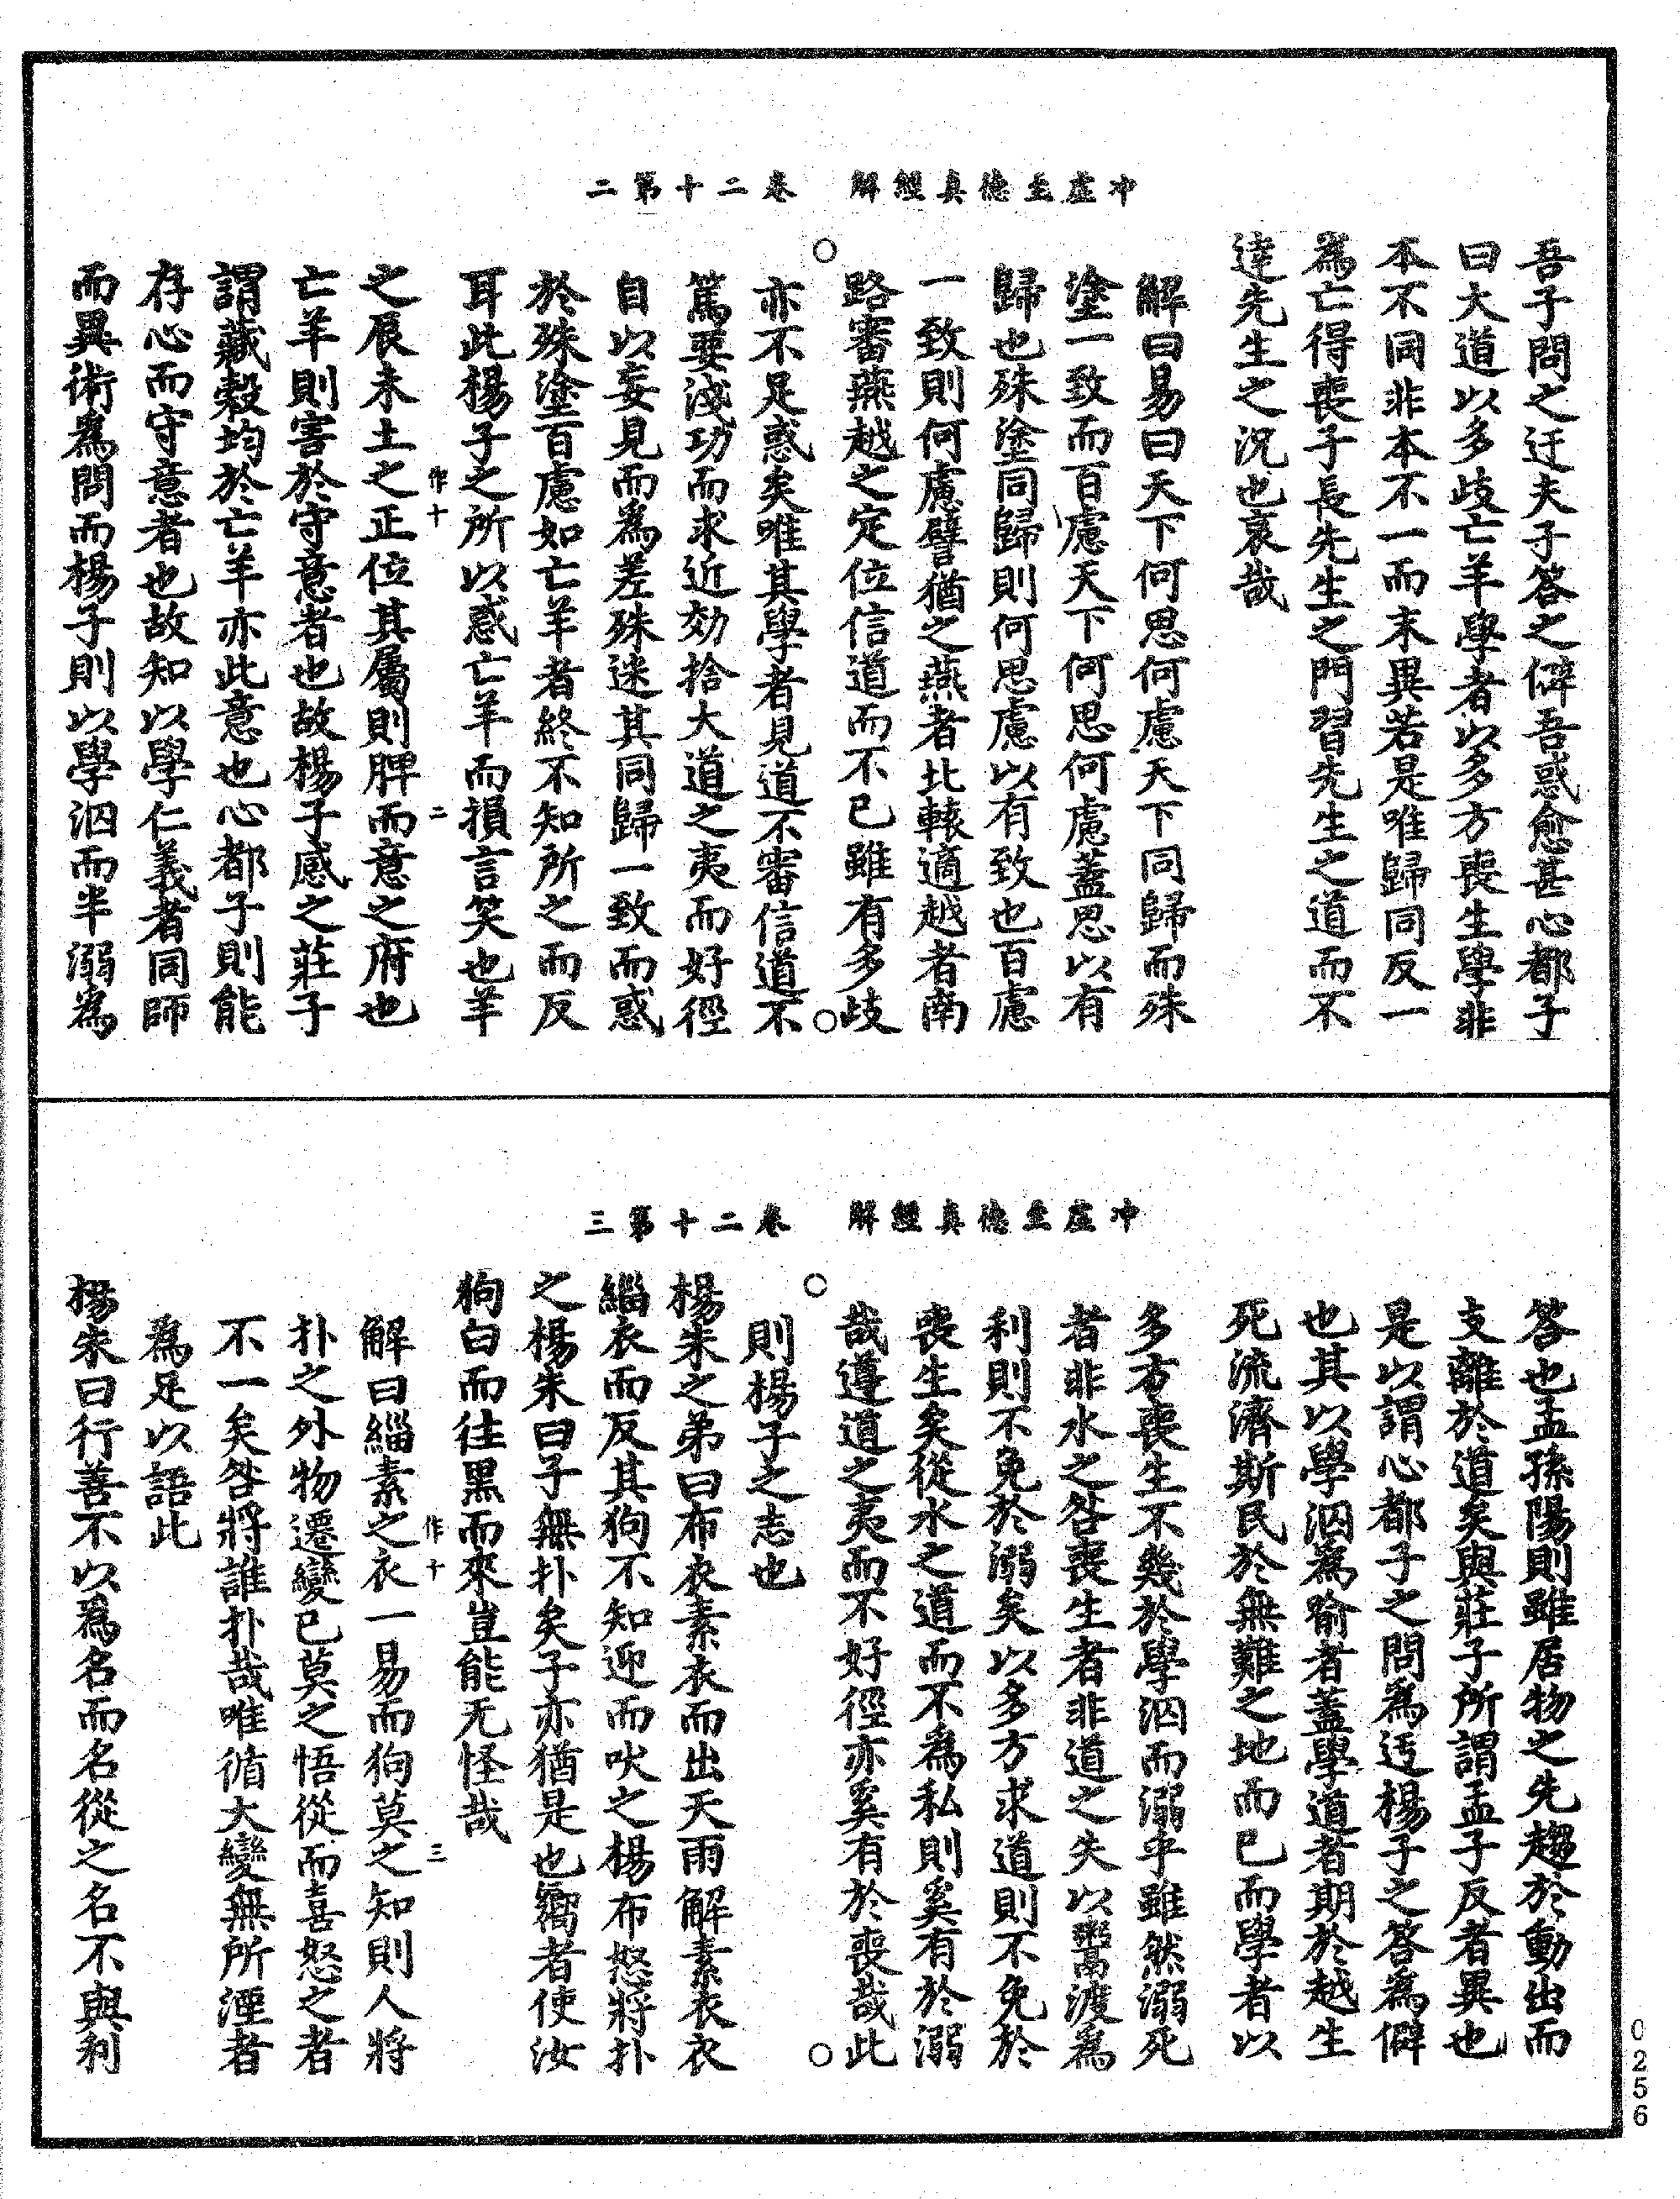 冲虛至德真經解　卷二十第二
吾子問之迂夫子答之僻吾惑愈甚心都子
曰大道以多歧亡羊學者以多方喪生學非
本不同非本不一而末異若是唯歸同反一
為亡得喪子長先生之門習先生之道而不
達先生之況也哀哉
解曰易曰天下何思何慮天下同歸而殊
塗一致而百慮天下何思何慮蓋思以有
歸也殊塗同歸則何思慮以有致也百慮
一致則何慮譬猶之燕者北轅適越者南
路審燕越之定位信道而不已雖有多歧
亦不足惑矣唯其學者見道不審信道不
篤要淺功而求近効捨大道之夷而好徑
自以妄見而為差殊迷其同歸一致而惑
於殊塗百慮如亡羊者終不知所之而反
耳此楊子之所以慼亡羊而損言笑也羊
作十　二
之辰未土之正位其屬則脾而意之府也
亡羊則害於守意者也故楊子感之莊子
謂藏穀均於亡羊亦此意也心都子則能
存心而守意者也故知以學仁義者同師
而異術為問而楊子則以學泅而半溺為
冲虛至德真經解　卷二十第三
答也孟孫陽則雖居物之先趨於動出而
支離於道矣與莊子所謂孟子反者異也
是以謂心都子之問為迂楊子之答為僻
也其以學泅為喻者蓋學道者期於越生
死流濟斯民於無難之地而已而學者以
多方喪生不幾於學泅而溺乎雖然溺死
者非水之咎喪生者非道之失以鬻渡為
利則不免於溺矣以多方求道則不免於
喪生矣從水之道而不為私則奚有於溺
哉遵道之夷而不好徑亦奚有於喪哉此
則楊子之志也
楊朱之弟曰布衣素衣而出天雨解素衣衣
緇衣而反其狗不知迎而吠之楊布怒將扑
之楊朱曰子無扑矣子亦猶是也嚮者使汝
狗白而往黑而來豈能无怪哉
作十　三
解曰緇素之衣一易而狗莫之知則人將
扑之外物遷變已莫之悟從而喜怒之者
不一矣咎將誰扑哉唯循大變無所湮者
為足以語此
楊朱曰行善不以為名而名從之名不與利
0256